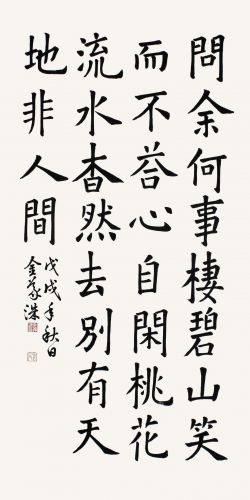 問余何事棲碧山笑
而不荅心自閑桃花
流水杳然去別有天
地非人間
戊戌年秋日
金 洙